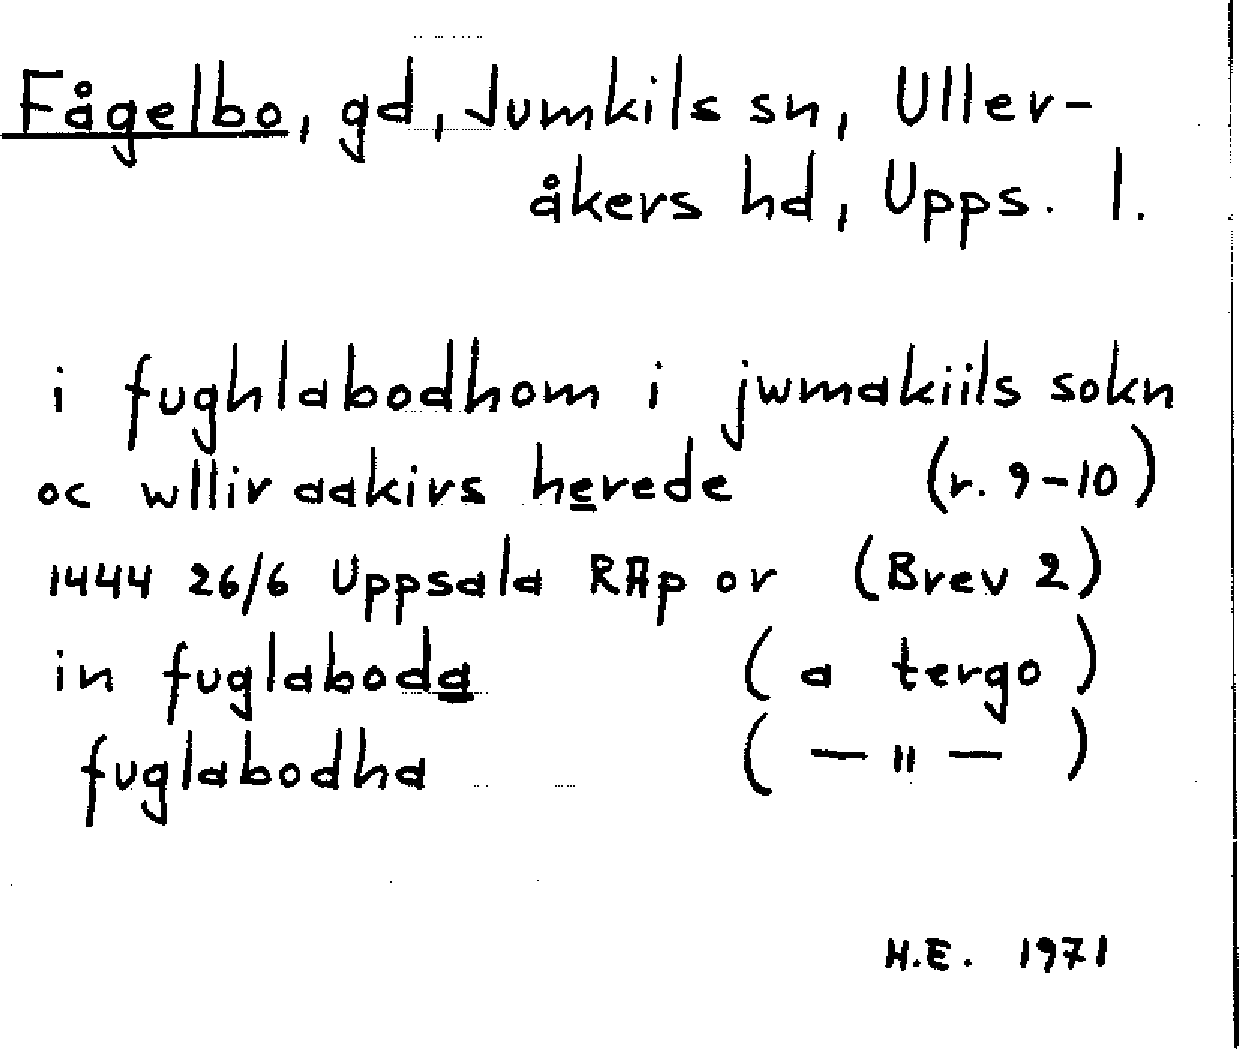 Fågelbo, gd, Jumkils sn, Uller-
åkers hd, Upps. l.
i fughlabodhom i jwmakiils sokn
oc wllir aakirs herede (r. 9-10)
1444 26/6 Uppsala RAp or (Brev 2)
in fuglaboda (a tergo)
fuglabodha (— " —)
H.E. 1971